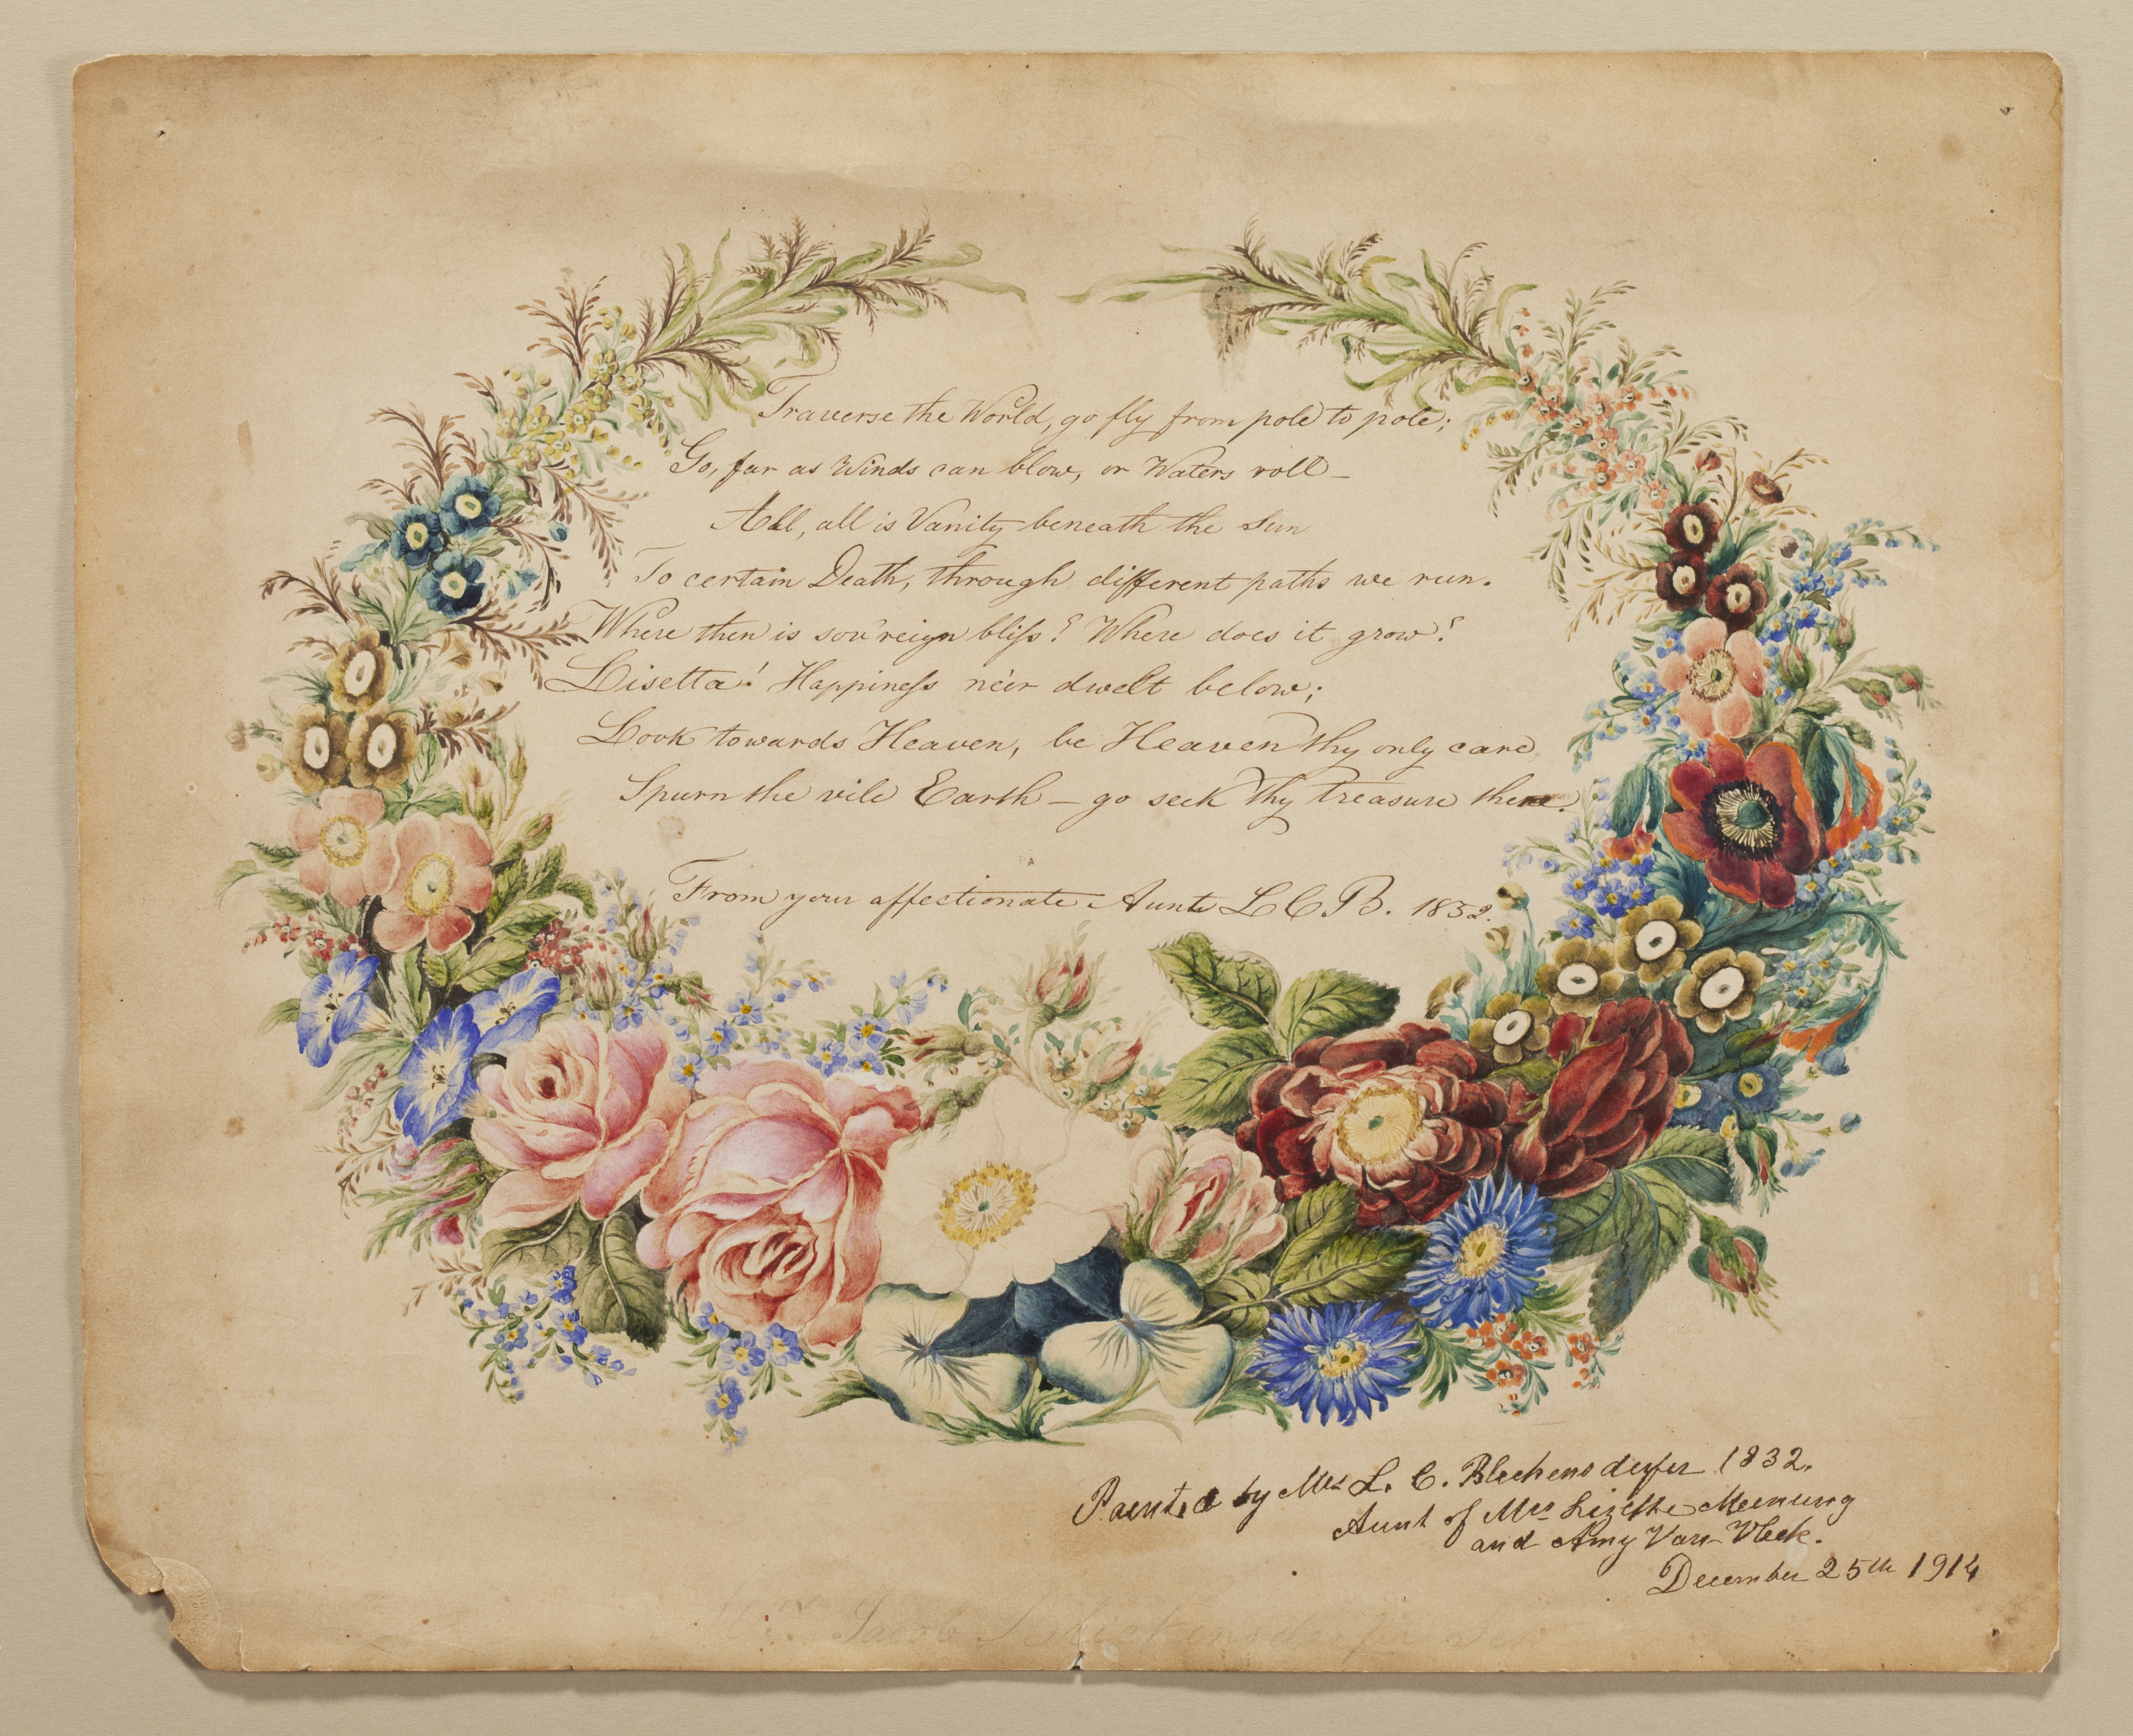 Traverse the World, go fly from pole to pole;
Go, far as Winds can blow, or Waters roll –
All, all is Vanity beneath the Sun
To certain Death, through different paths we run.
Where then is sov'reign bliſs? Where does it grow?
Lisetta! Happineſs ne'er dwelt below;
Look towards Heaven, be Heaven thy only care,
Spurn the vile Earth – go seek thy treasure there.
From your affectionate Aunt L C B. 1832.
Painted by Mrs L. C. Blickensderfer 1832.
Aunt of Mrs Lizette Meinung
and Amy Van-Vleck.
December 25th 1914
Mrs Jacob Blickensderfer Sen